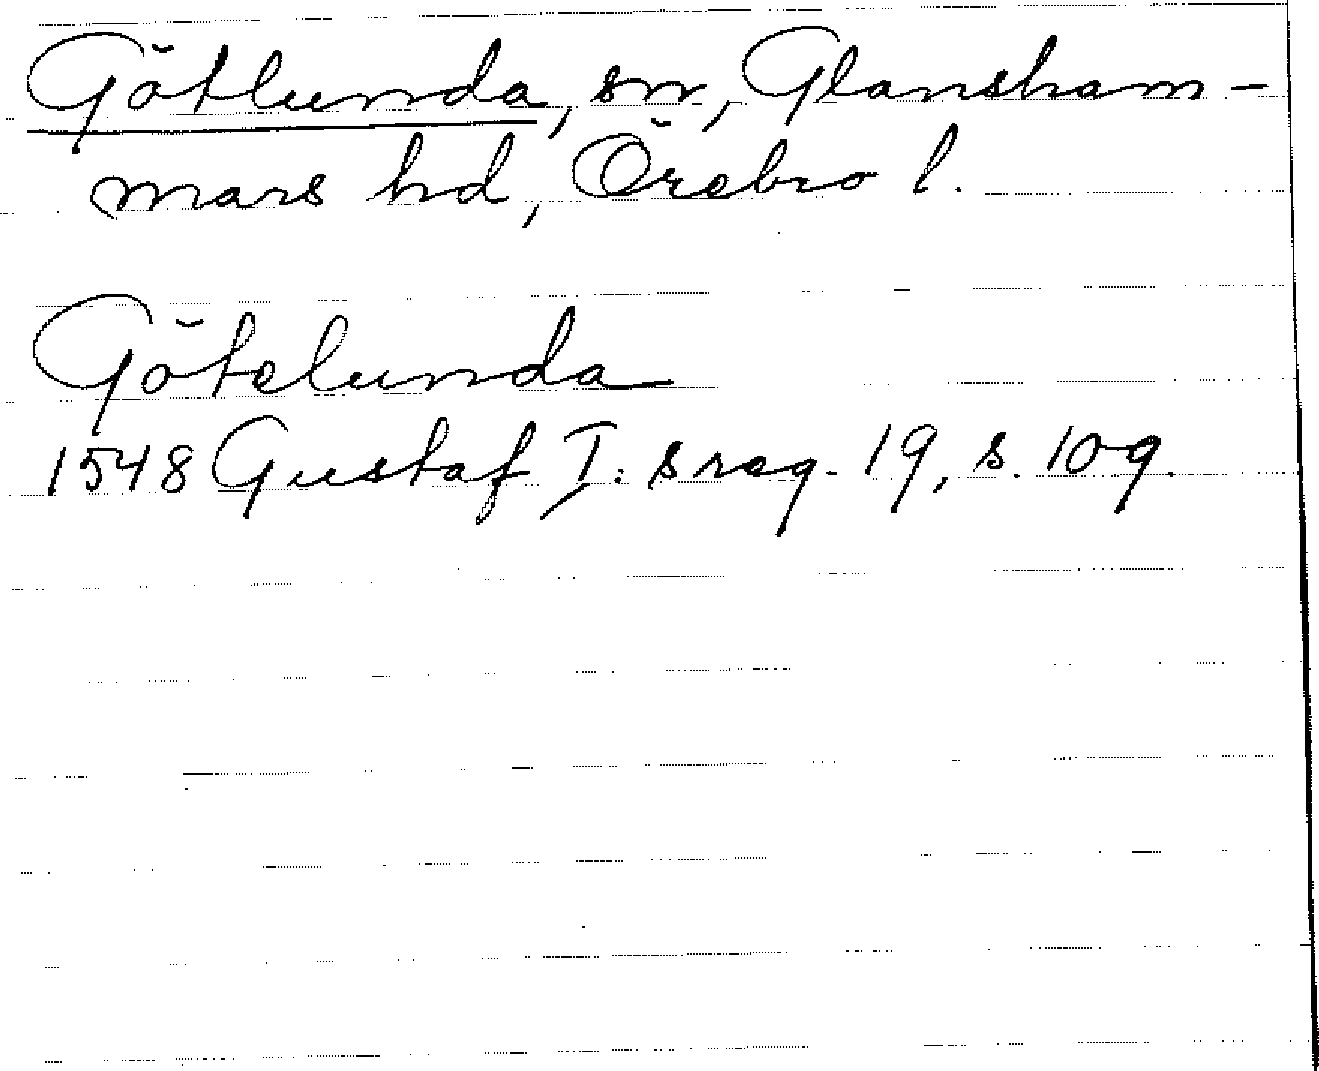 Götlunda, sn, Glansham-
mars hd, Örebro l.
Götelunda
1548 Gustaf I: s reg. 19, s. 109.